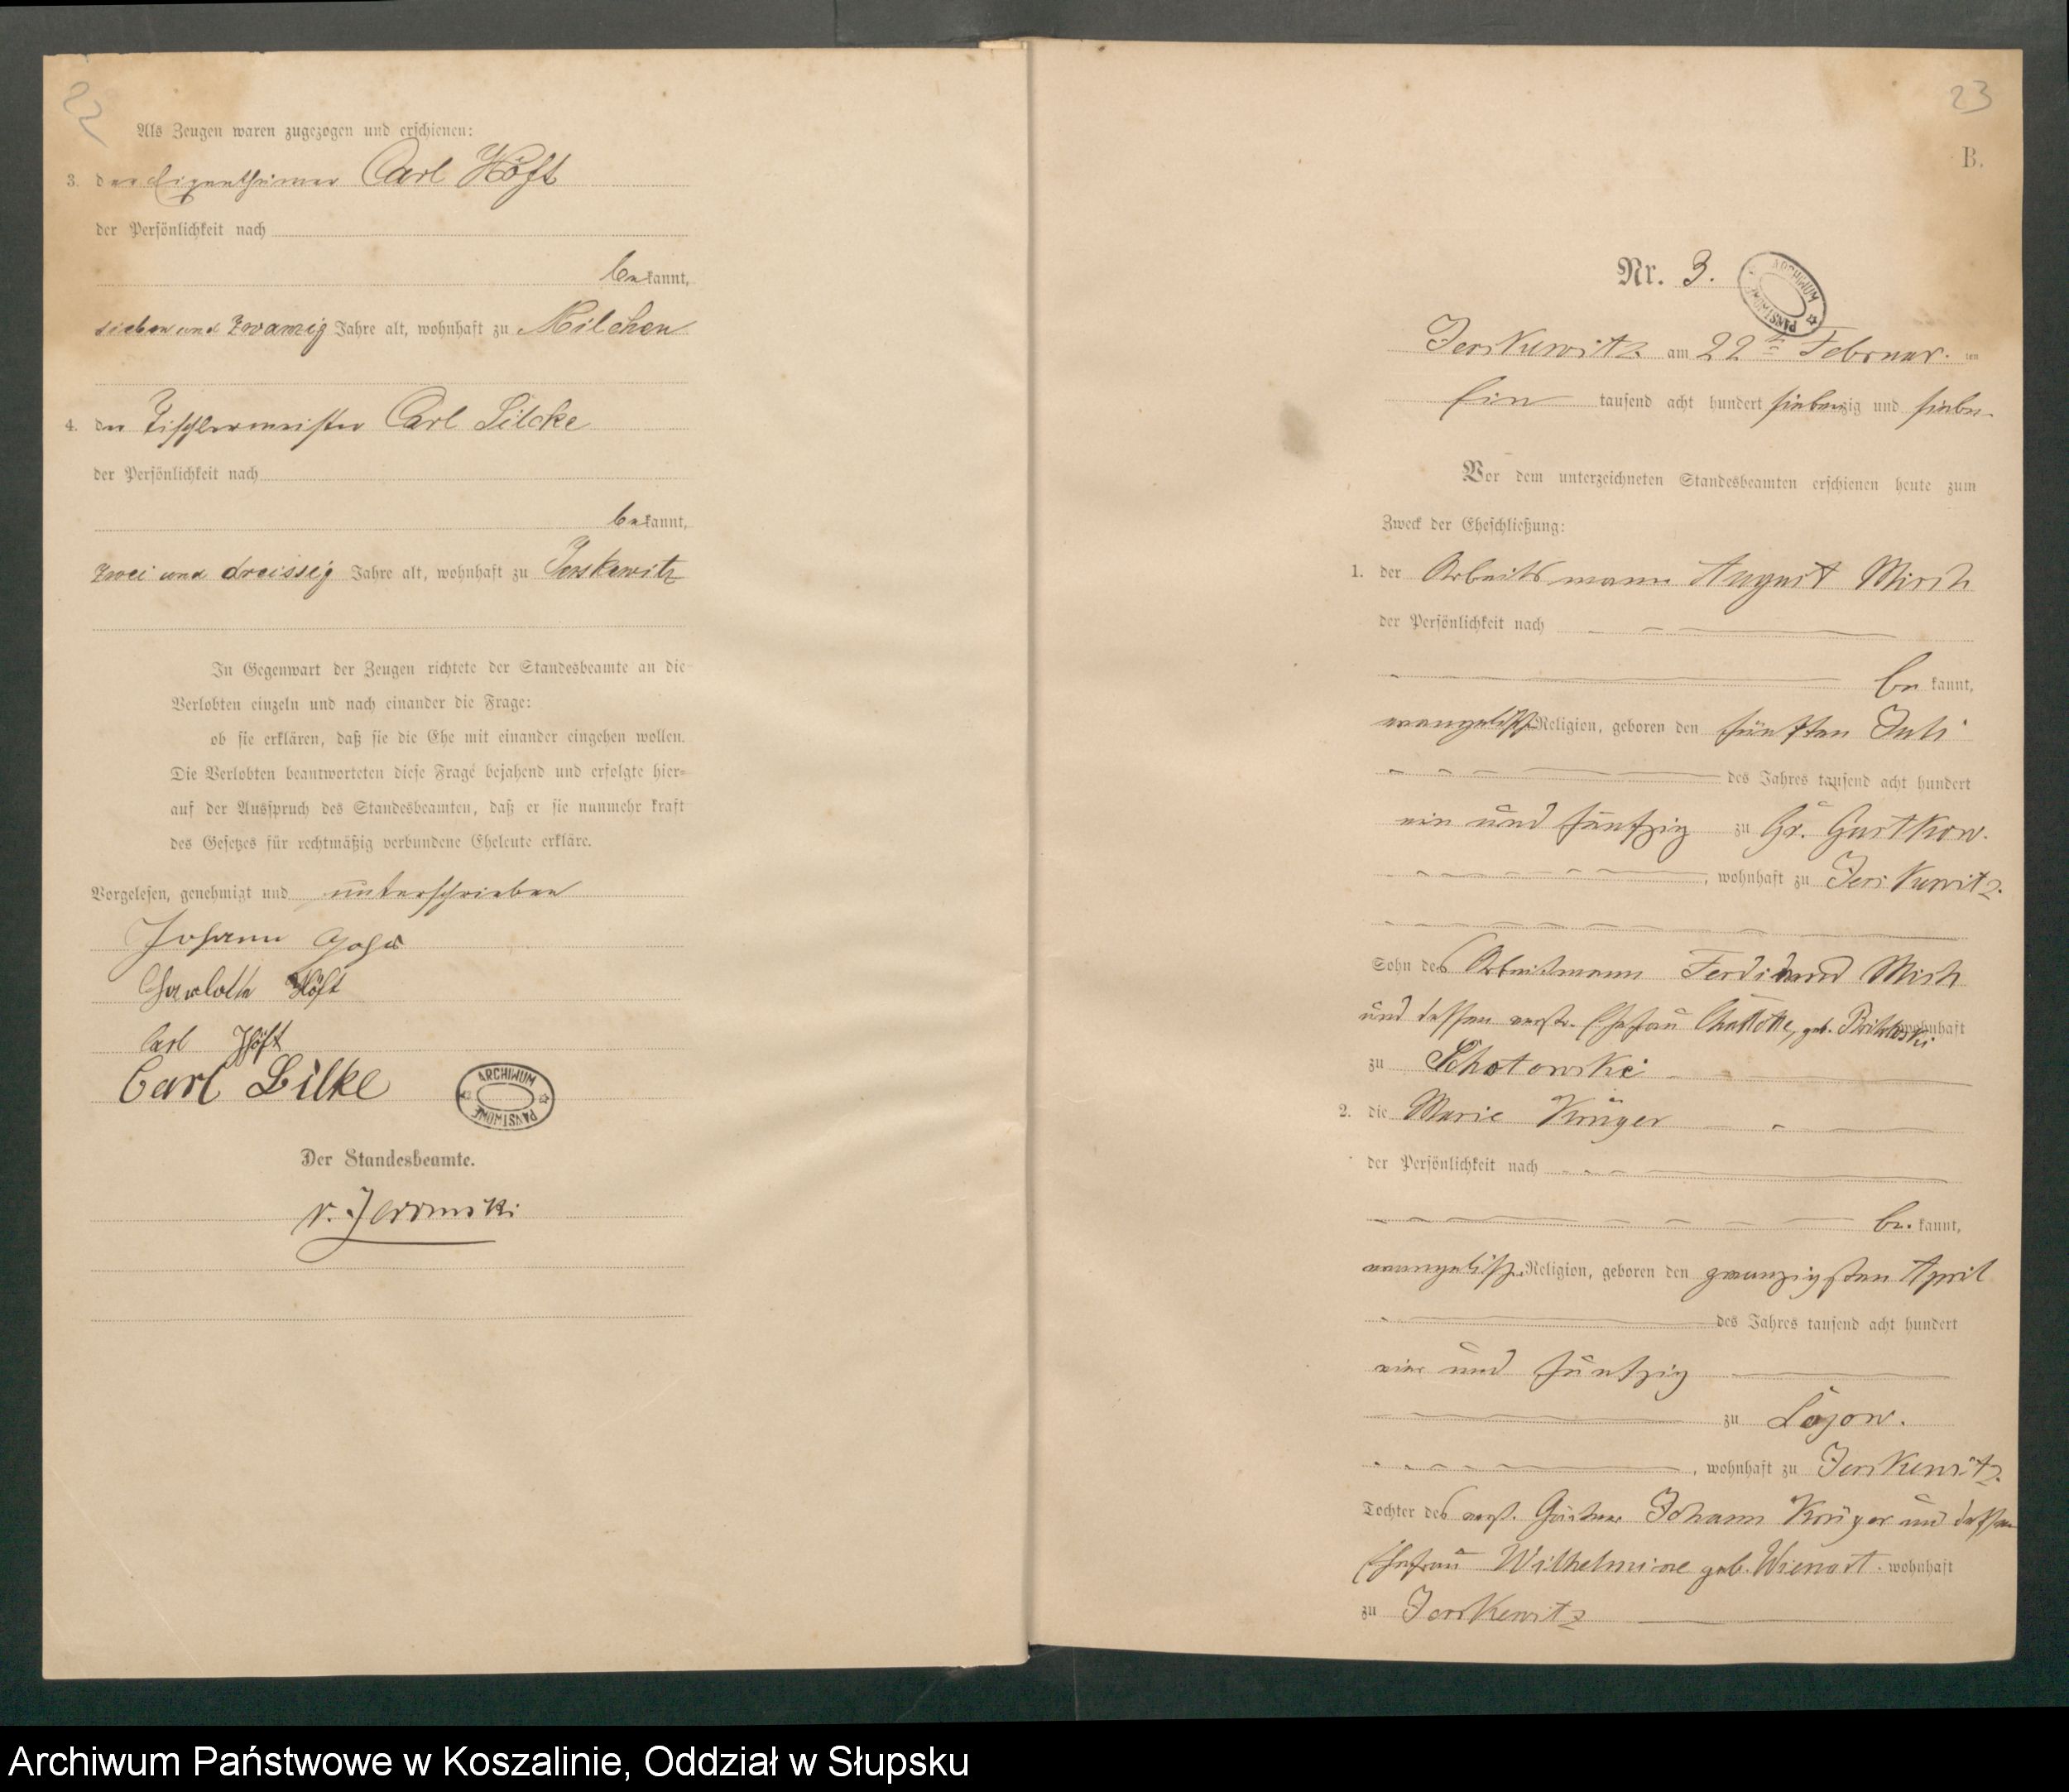 22
Als Zeugen waren zugezogen und erschienen:
3. der Eigenthümer Carl Höft
der Persönlichkeit nach
bekannt,
sieben und zwanzig Jahre alt, wohnhaft zu Milchen
4. der Tischlermeister Carl Lilcke
der Persönlichkeit nach
bekannt,
zwei und dreissig Jahre alt, wohnhaft zu Jerskewitz
In Gegenwart der Zeugen richtete der Standesbeamte an die
Verlobten einzeln und nach einander die Frage:
ob sie erklären, daß sie die Ehe mit einander eingehen wollen.
Die Verlobten beantworteten diese Frage bejahend und erfolgte hier-
auf der Ausspruch des Standesbeamten, daß er sie nunmehr kraft
des Gesetzes für rechtmäßig verbundene Eheleute erkläre.
Vorgelesen, genehmigt und unterschrieben
Johann
Höft
Carl Höft
Carl Lilke
ARCHIWUM PAŃSTWOWE
Der Standesbeamte.
23
B.
Nr. 3.
ARCHIWUM PAŃSTWOWE
Jerskewitz am 22ten Februar ten
Ein tausend acht hundert siebenzig und sieben
Vor dem unterzeichneten Standesbeamten erschienen heute zum
Zweck der Eheschließung:
1. der Arbeitsmann August Misch
der Persönlichkeit nach
be kannt,
evangelisch Religion, geboren den fünften Juli
des Jahres tausend acht hundert
ein und fünfzig zu Gr. Gustkow.
, wohnhaft zu Jerskewitz.
Sohn des Arbeitsmann Ferdinand Misch
und dessen verst. Ehefrau Charlotte, geb. wohnhaft
zu Schotowske
2. die Marie Krüger
der Persönlichkeit nach
be kannt,
evangelisch Religion, geboren den zwanzigsten April
des Jahres tausend acht hundert
ein und fünfzig
zu Lojow.
, wohnhaft zu Jerskewitz.
Tochter des verst. Johann Krüger und dessen
Ehefrau Wilhelmine geb. Wienart. wohnhaft
zu Jerskewitz
Archiwum Państwowe w Koszalinie, Oddział w Słupsku